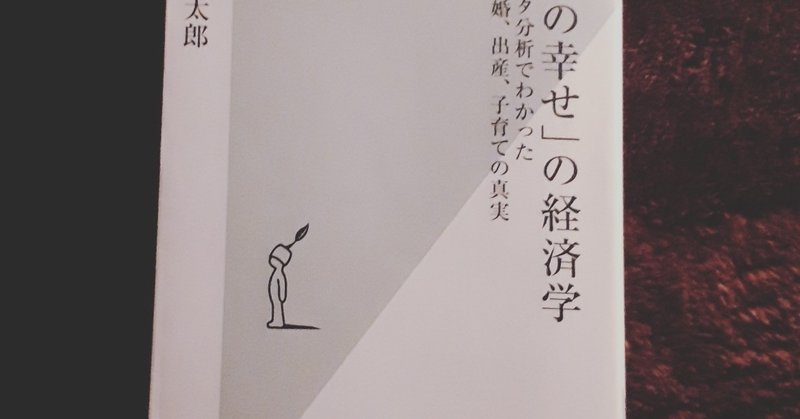 の幸せ」の経済学
タ分析でわかった
婚、出産、子育ての真実
太郎